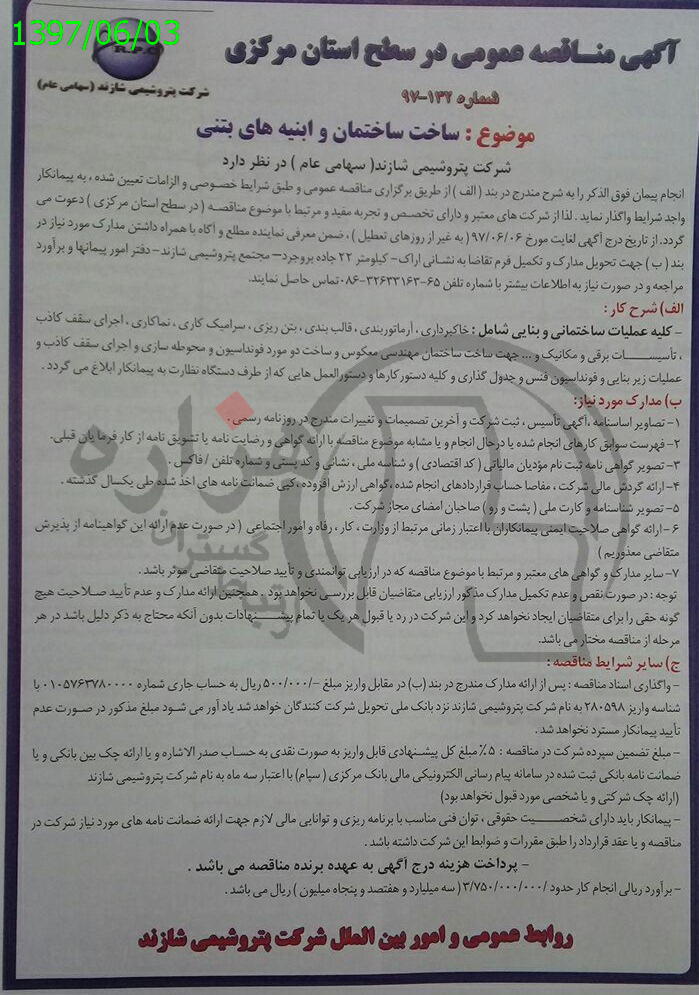 1397/06/03
K.P.C
شرکت پتروشیمی شازند (سهامی عام)
آگهی مناقصه عمومی در سطح استان مرکزی
شماره ۱۳۲-۹۷
موضوع : ساخت ساختمان و ابنیه های بتنی
شرکت پتروشیمی شازند( سهامی عام ) در نظر دارد
انجام پیمان فوق الذکر را به شرح مندرج در بند ( الف ) از طریق برگزاری مناقصه عمومی و طبق شرایط خصوصی و الزامات تعیین شده ، به پیمانکار
واجد شرایط واگذار نماید . لذا از شرکت های معتبر و دارای تخصص و تجربه مفید و مرتبط با موضوع مناقصه ( در سطح استان مرکزی ) دعوت می
گردد. از تاریخ درج آگهی لغایت مورخ ۹۷/۰۶/۰۶ ( به غیر از روزهای تعطیل ) ، ضمن معرفی نماینده مطلع و آگاه با همراه داشتن مدارک مورد نیاز در
بند ( ب ) جهت تحویل مدارک و تکمیل فرم تقاضا به نشانی اراک- کیلومتر ۲۲ جاده بروجرد– مجتمع پتروشیمی شازند- دفتر امور پیمانها و برآورد
مراجعه و در صورت نیاز به اطلاعات بیشتر با شماره تلفن ۶۵-۳۲۶۳۳۱۶۳-۰۸۶ تماس حاصل نمایند.
الف) شرح کار :
- کلیه عملیات ساختمانی و بنایی شامل : خاکبرداری ، آرماتوربندی ، قالب بندی ، بتن ریزی ، سرامیک کاری ، نماکاری ، اجرای سقف کاذب
، تأسیسات برقی و مکانیک و ... جهت ساخت ساختمان مهندسی معکوس و ساخت دو مورد فونداسیون و محوطه سازی و اجرای سقف کاذب و
عملیات زیر بنایی و فونداسیون فنس و جدول گذاری و کلیه دستور کارها و دستورالعمل هایی که از طرف دستگاه نظارت به پیمانکار ابلاغ می گردد .
ب) مدارک مورد نیاز:
۱- تصاویر اساسنامه ،آگهی تأسیس ، ثبت شرکت و آخرین تصمیمات و تغییرات مندرج در روزنامه رسمی.
۲- فهرست سوابق کارهای انجام شده یا درحال انجام و یا مشابه موضوع مناقصه با ارائه گواهی و رضایت نامه یا تشویق نامه از کار فرما یان قبلی.
۳- تصویر گواهی نامه ثبت نام مؤدیان مالیاتی ( کد اقتصادی ) و شناسه ملی ، نشانی و کد پستی و شماره تلفن / فاکس .
۴- ارائه گردش مالی شرکت ، مفاصا حساب قراردادهای انجام شده ،گواهی ارزش افزوده ،کپی ضمانت نامه های اخذ شده طی یکسال گذشته .
۵- تصویر شناسنامه و کارت ملی ( پشت و رو ) صاحبان امضای مجاز شرکت .
۶- ارائه گواهی صلاحیت ایمنی پیمانکاران با اعتبار زمانی مرتبط از وزارت ، کار ، رفاه و امور اجتماعی ( در صورت عدم ارائه این گواهینامه از پذیرش
متقاضی معذوریم )
۷- سایر مدارک و گواهی های معتبر و مرتبط با موضوع مناقصه که در ارزیابی توانمندی و تأیید صلاحیت متقاضی موثر باشد .
توجه : در صورت نقص و عدم تکمیل مدارک مذکور ارزیابی متقاضیان قابل بررسی نخواهد بود . همچنین ارائه مدارک و عدم تأیید صلاحیت هیچ
گونه حقی را برای متقاضیان ایجاد نخواهد کرد و این شرکت در رد یا قبول هر یک یا تمام پیشنهادات بدون آنکه محتاج به ذکر دلیل باشد در هر
مرحله از مناقصه مختار می باشد.
ج) سایر شرایط مناقصه :
- واگذاری اسناد مناقصه : پس از ارائه مدارک مندرج در بند (ب) در مقابل واریز مبلغ -/۵۰۰/۰۰۰ ریال به حساب جاری شماره ۰۱۰۵۷۶۳۷۸۰۰۰۰ با
شناسه واریز ۲۸۰۵۹۸ به نام شرکت پتروشیمی شازند نزد بانک ملی تحویل شرکت کنندگان خواهد شد یاد آور می شود مبلغ مذکور در صورت عدم
تأیید پیمانکار مسترد نخواهد شد .
- مبلغ تضمین سپرده شرکت در مناقصه : ۵٪ مبلغ کل پیشنهادی قابل واریز به صورت نقدی به حساب صدر الاشاره و یا ارائه چک بین بانکی و یا
ضمانت نامه بانکی ثبت شده در سامانه پیام رسانی الکترونیکی مالی بانک مرکزی ( سپام) با اعتبار سه ماه به نام شرکت پتروشیمی شازند
(ارائه چک شرکتی و یا شخصی مورد قبول نخواهد بود)
- پیمانکار باید دارای شخصیت حقوقی ، توان فنی مناسب با برنامه ریزی و توانایی مالی لازم جهت ارائه ضمانت نامه های مورد نیاز شرکت در
مناقصه و یا عقد قرارداد را طبق مقررات و ضوابط این شرکت داشته باشد .
- پرداخت هزینه درج آگهی به عهده برنده مناقصه می باشد .
- برآورد ریالی انجام کار حدود /۳/۷۵۰/۰۰۰/۰۰۰ ( سه میلیارد و هفتصد و پنجاه میلیون ) ریال می باشد .
روابط عمومی و امور بین الملل شرکت پتروشیمی شازند